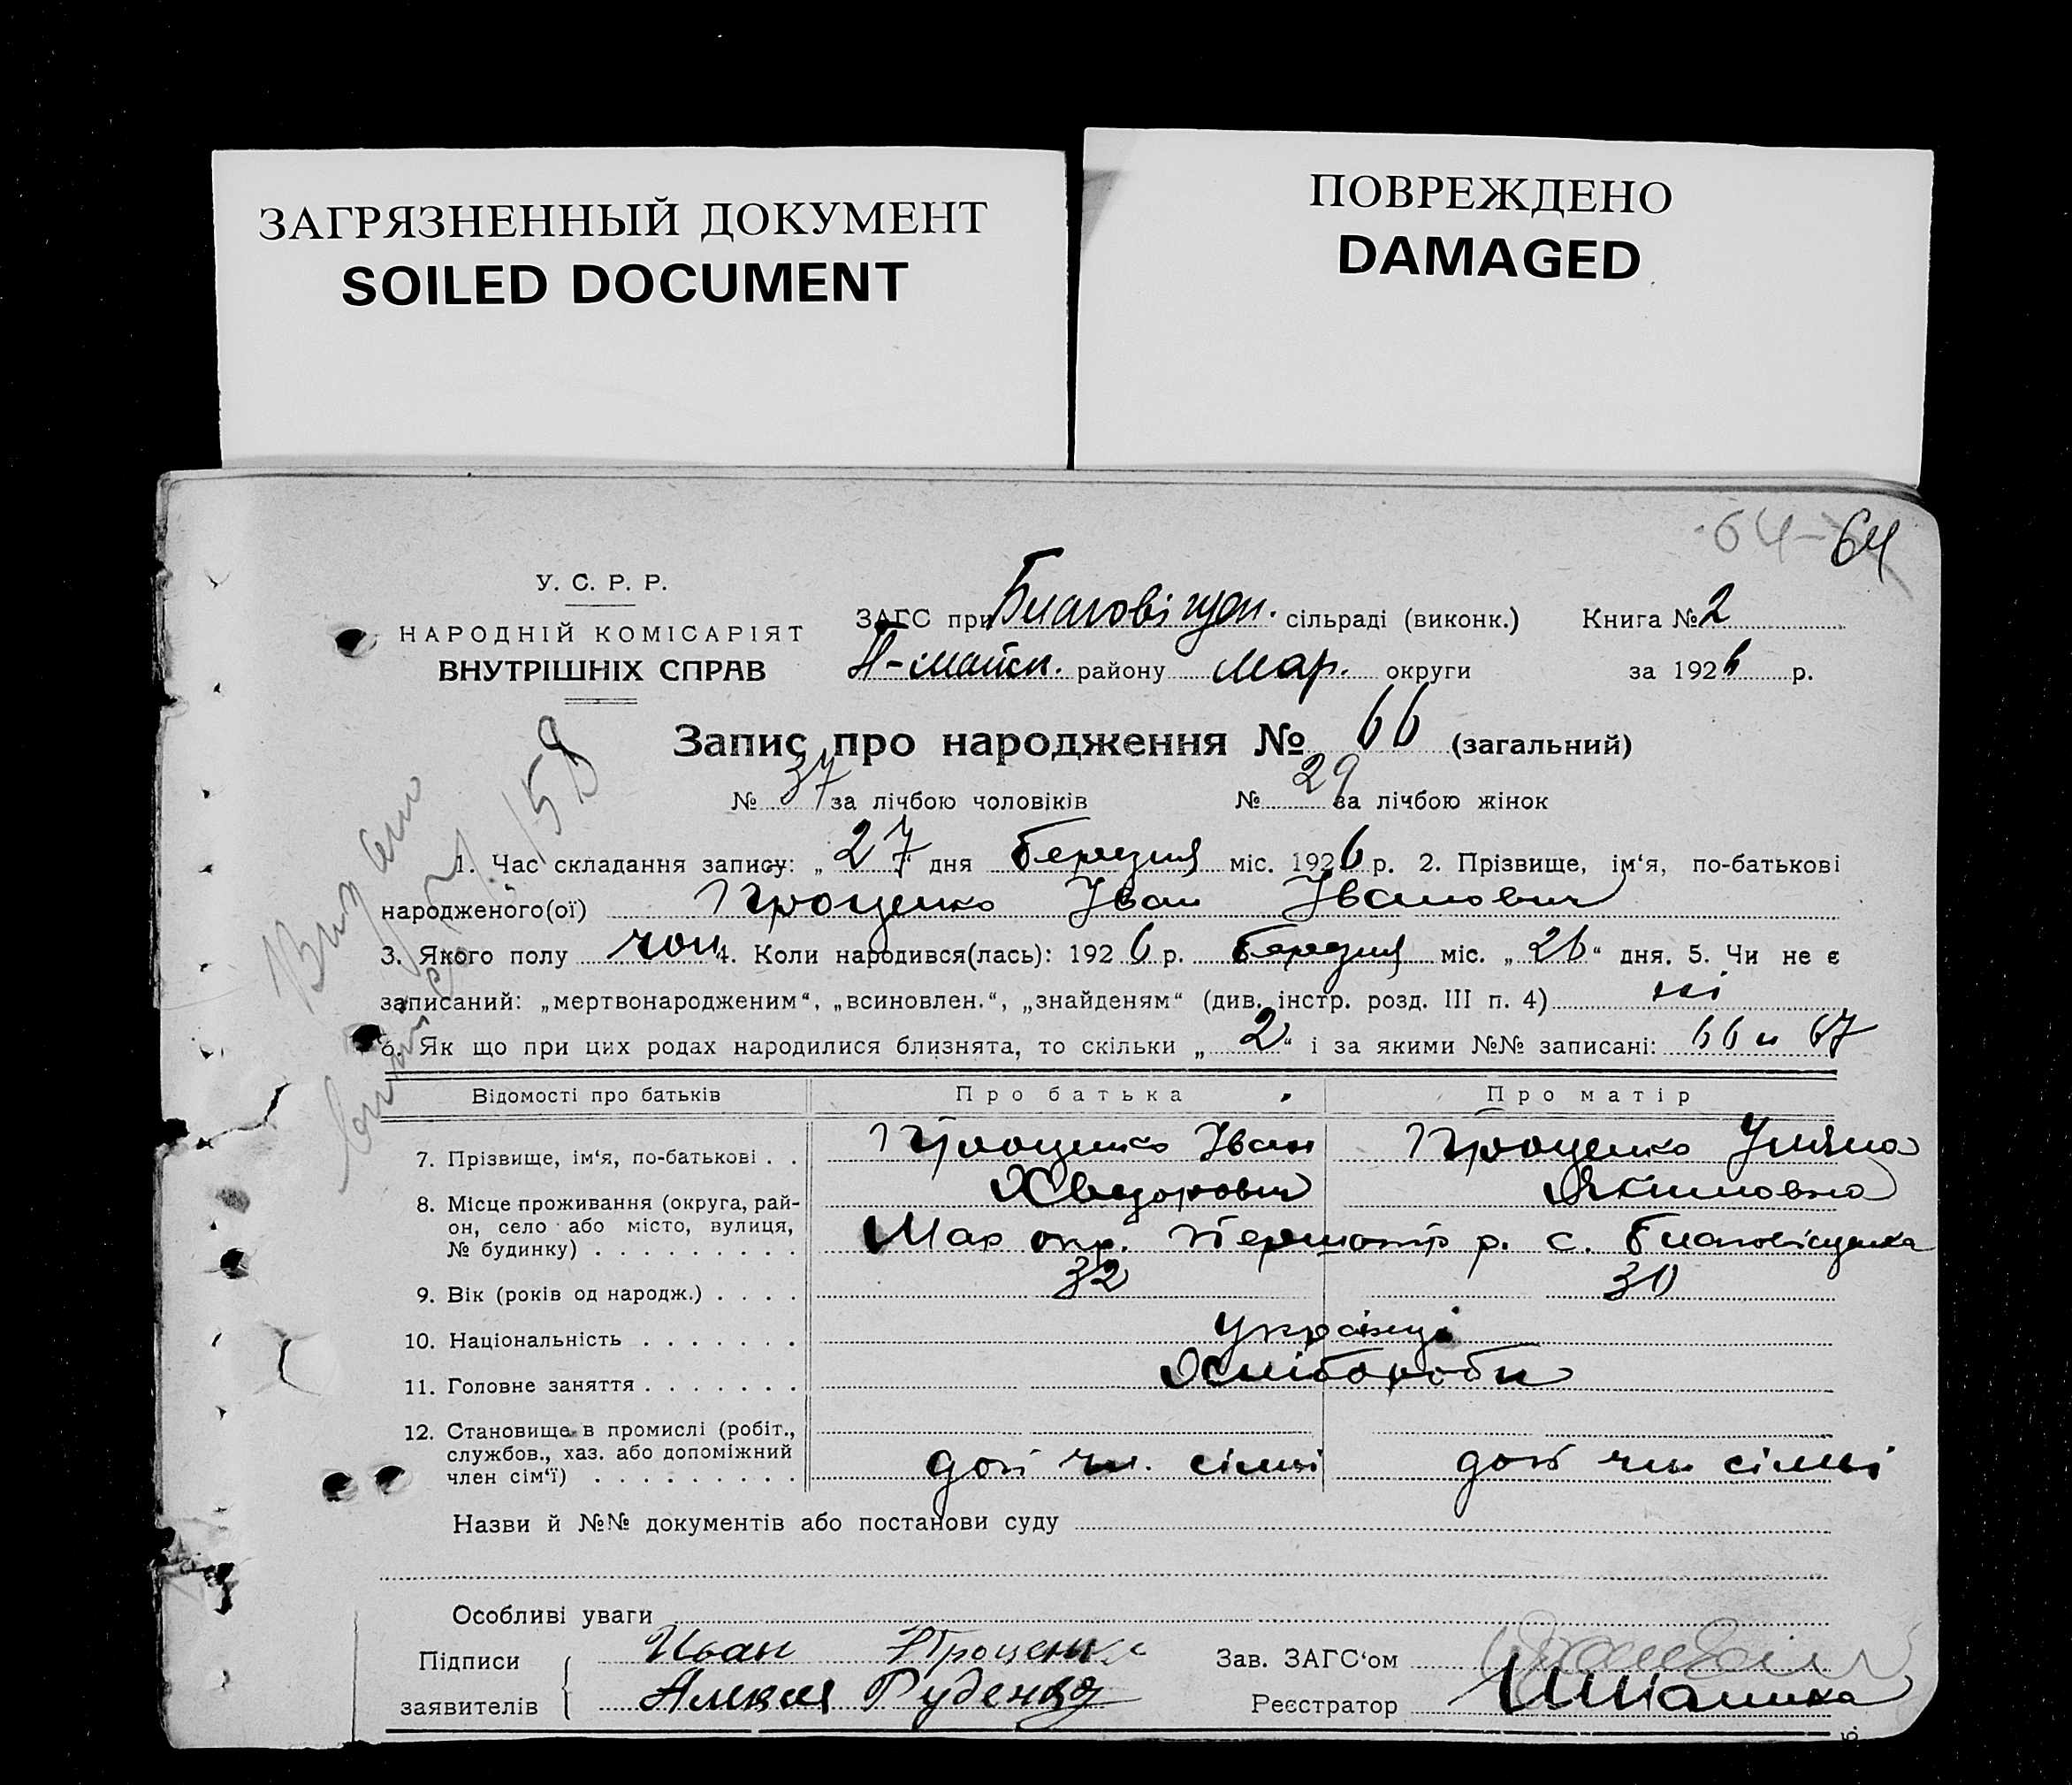 ЗАГРЯЗНЕННЫЙ ДОКУМЕНТ
SOILED DOCUMENT
ПОВРЕЖДЕНО
DAMAGED
64 - 64
У. С. Р. Р.
НАРОДНІЙ КОМІСАРІЯТ
ВНУТРІШНІХ СПРАВ
ЗАГС при Благовіщен. сільраді (виконк.) Книга № 2
П-майск. району Мар. округи за 1926 р.
Запис про народження № 66 (загальний)
№ 37 за лічбою чоловіків № 29 за лічбою жінок
1. Час складання запису: „27" дня Березня міс. 1926 р. 2. Прізвище, ім'я, по-батькові
народженого(ої) Проценко Іван Іванович
3. Якого полу чол 4. Коли народився(лась): 1926 р. Березня міс. „26" дня. 5. Чи не є
записаний: „мертвонародженим", „всиновлен.", „знайденям" (див. інстр. розд. III п. 4) ні
6. Як що при цих родах народилися близнята, то скільки „2" і за якими №№ записані: 66 и 67
Відомості про батьків Про батька Про матір
7. Прізвище, ім'я, по-батькові . . Проценко Іван Хведорович Проценко Уляна Якимовна
8. Місце проживання (округа, рай-
он, село або місто, вулиця,
№ будинку) . . . . . . . . . Мар окр. р. с. Благовіщенка
9. Вік (років од народж.) . . . . 32 30
10. Національність . . . . . . . Українці
11. Головне заняття . . . . . . . Хлібороби
12. Становище в промислі (робіт.,
службов., хаз. або допоміжний
член сім'ї) . . . . . . . . . доп чл. сімьі доп чл сімьі
Назви й №№ документів або постанови суду
Особливі уваги
Підписи заявителів Иван Проценко
Алексей Руденко
Зав. ЗАГС'ом
Реєстратор